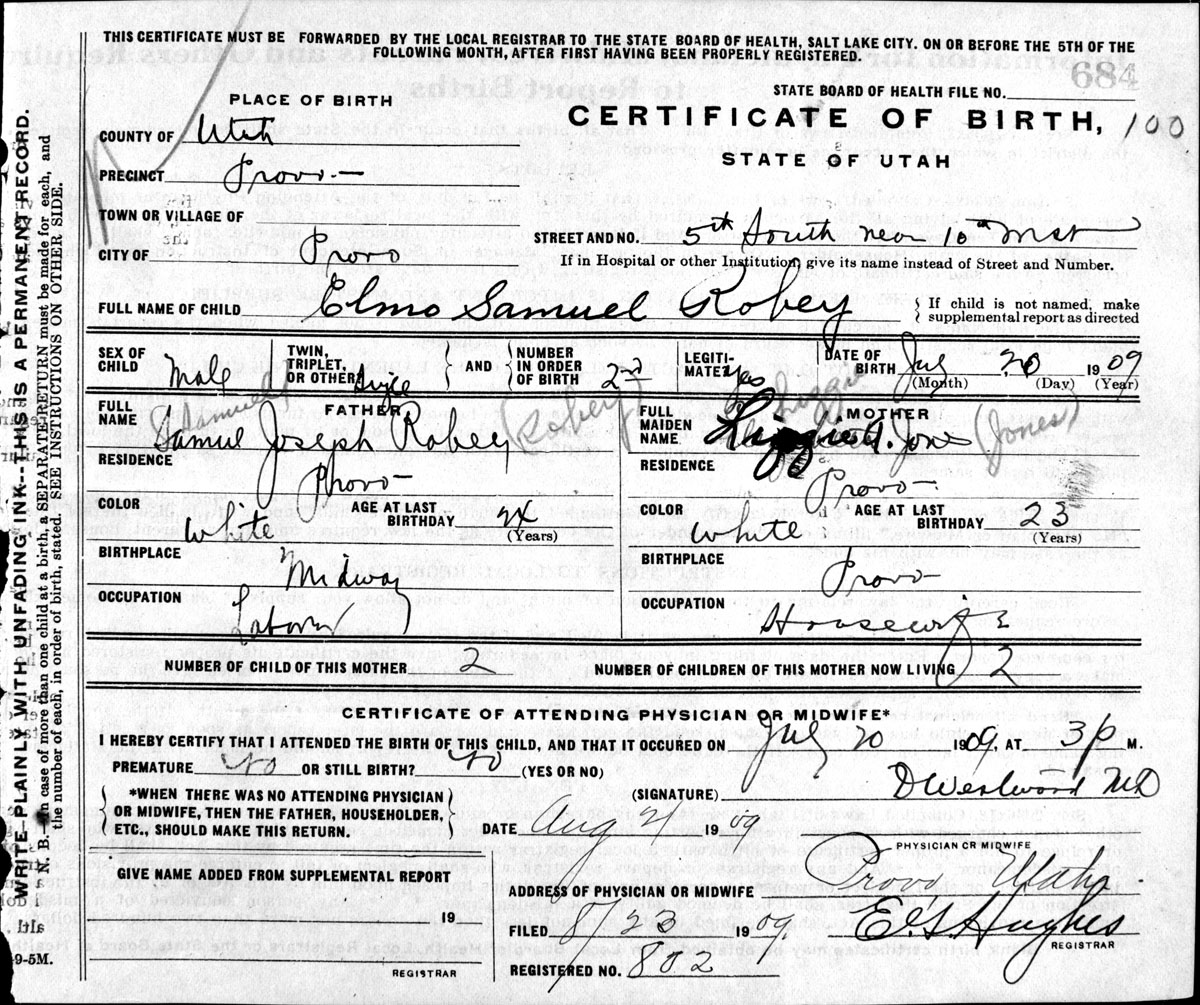 THIS CERTIFICATE MUST BE FORWARDED BY THE LOCAL REGISTRAR TO THE STATE BOARD OF HEALTH, SALT LAKE CITY. ON OR BEFORE THE 5TH OF THE
FOLLOWING MONTH, AFTER FIRST HAVING BEEN PROPERLY REGISTERED.
684
STATE BOARD OF HEALTH FILE NO.
PLACE OF BIRTH
CERTIFICATE OF BIRTH, 100
STATE OF UTAH
COUNTY OF Utah
PRECINCT Provo
TOWN OR VILLAGE OF
CITY OF Provo
STREET AND NO. 5th South near 10th West
If in Hospital or other Institution give its name instead of Street and Number.
FULL NAME OF CHILD Elmo Samuel Robey
{ If child is not named, make
supplemental report as directed
SEX OF CHILD Male
TWIN, TRIPLET, OR OTHER
AND NUMBER IN ORDER OF BIRTH
LEGITIMATE? yes
DATE OF BIRTH July 20 1909
(Month) (Day) (Year)
FATHER
FULL NAME Samuel Joseph Robey (Robey)
Samuel
RESIDENCE Provo
COLOR White
AGE AT LAST BIRTHDAY
(Years)
BIRTHPLACE Midway
OCCUPATION Laborer
MOTHER
FULL MAIDEN NAME Jones (Jones)
RESIDENCE Provo
COLOR White
AGE AT LAST BIRTHDAY 23
(Years)
BIRTHPLACE Provo
OCCUPATION Housewife
NUMBER OF CHILD OF THIS MOTHER 2
NUMBER OF CHILDREN OF THIS MOTHER NOW LIVING 2
CERTIFICATE OF ATTENDING PHYSICIAN OR MIDWIFE*
I HEREBY CERTIFY THAT I ATTENDED THE BIRTH OF THIS CHILD, AND THAT IT OCCURED ON July 20 1909, AT 3 P M.
PREMATURE No OR STILL BIRTH? No (YES OR NO)
*WHEN THERE WAS NO ATTENDING PHYSICIAN
OR MIDWIFE, THEN THE FATHER, HOUSEHOLDER,
ETC., SHOULD MAKE THIS RETURN.
(SIGNATURE) D Westwood MD
DATE Aug 21 1909
PHYSICIAN OR MIDWIFE
GIVE NAME ADDED FROM SUPPLEMENTAL REPORT
19
REGISTRAR
ADDRESS OF PHYSICIAN OR MIDWIFE Provo Utah
FILED 8/23 1909
E S Hughes
REGISTRAR
REGISTERED NO. 802
WRITE PLAINLY WITH UNFADING INK--THIS IS A PERMANENT RECORD.
N. B.--In case of more than one child at a birth, a SEPARATE RETURN must be made for each, and
the number of each, in order of birth, stated. SEE INSTRUCTIONS ON OTHER SIDE.
9-5M.